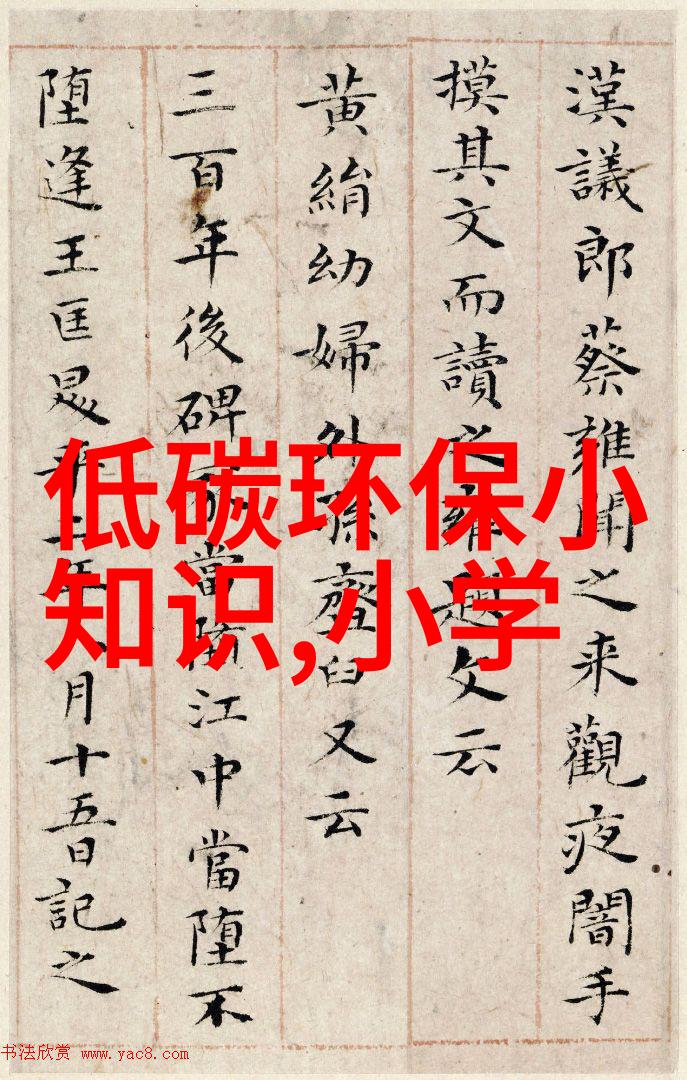 漢議郎蔡雍聞之来觀夜闇手
摸其文而讀之雍題文云
黄絹幼婦外孫齏臼又云
三百年後碑當堕江中當堕不
堕逢王匡昇平二年八月十五日記之
低碳环保小
知识,小学
书法欣赏 www.yac8.com